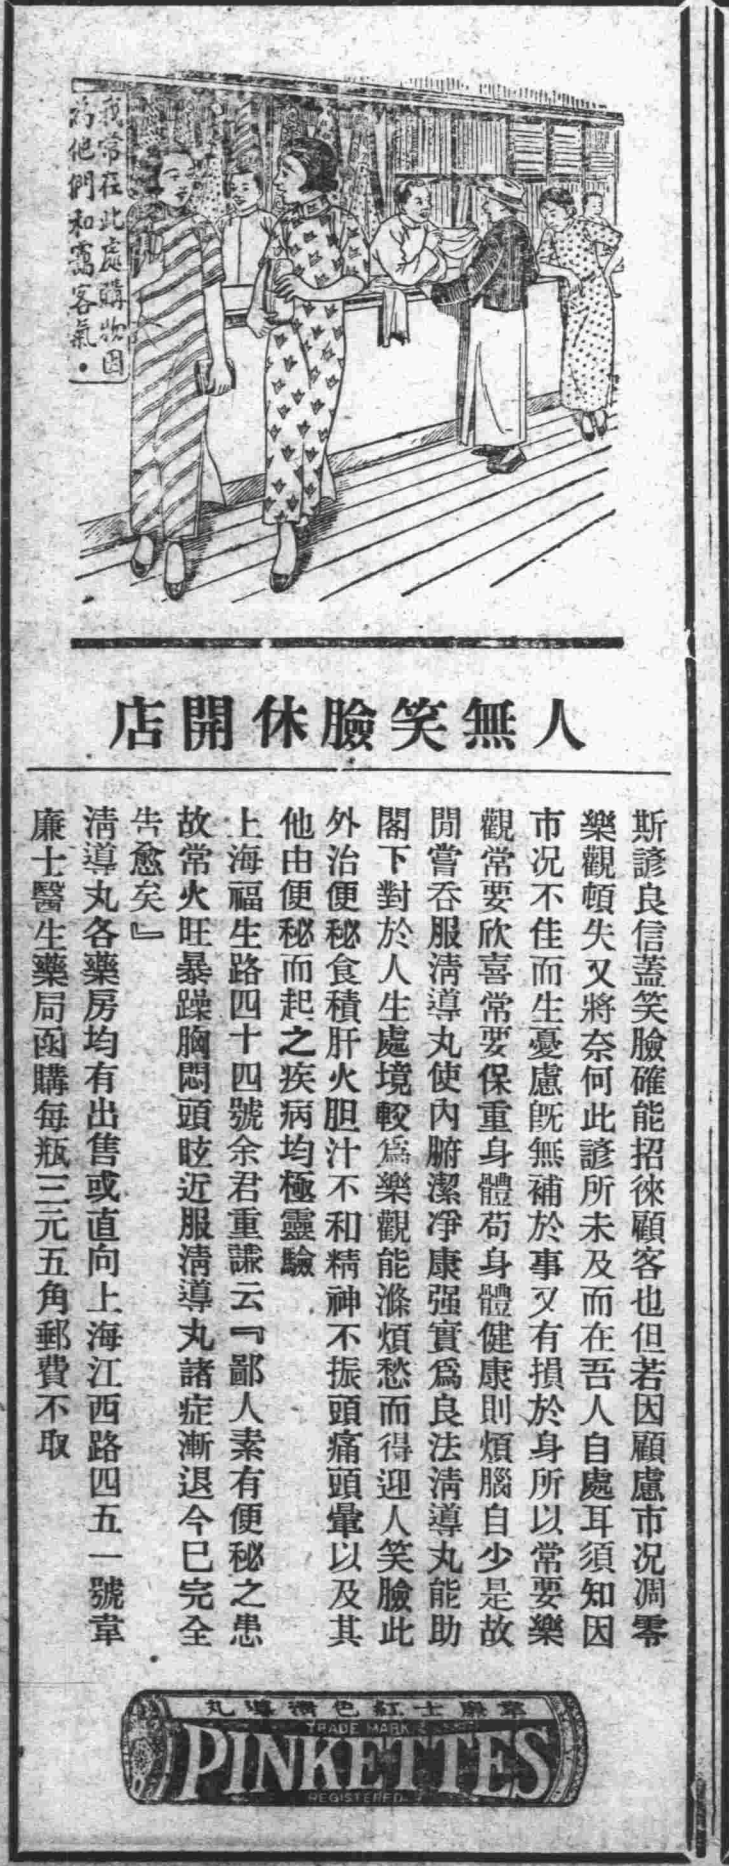 我常在此處購物因
為他們和靄客氣。
人無笑臉休開店
斯諺良信蓋笑臉確能招徠顧客也但若因顧慮市況凋零
樂觀頓失又將奈何此諺所未及而在吾人自處耳須知因
市況不佳而生憂慮旣無補於事又有損於身所以常要樂
觀常要欣喜常要保重身體苟身體健康則煩腦自少是故
閒嘗吞服淸導丸使內腑潔凈康强實爲良法淸導丸能助
閣下對於人生處境較爲樂觀能滌煩愁而得迎人笑臉此
外治便秘食積肝火胆汁不和精神不振頭痛頭暈以及其
他由便秘而起之疾病均極靈驗
上海福生路四十四號余君重謙云『鄙人素有便秘之患
故常火旺暴躁胸悶頭眩近服淸導丸諸症漸退今已完全
告愈矣』
淸導丸各藥房均有出售或直向上海江西路四五一號韋
廉士醫生藥局函購每瓶三元五角郵費不取
韋廉士紅色淸導丸
TRADE MARK
PINKETTES
REGISTERED